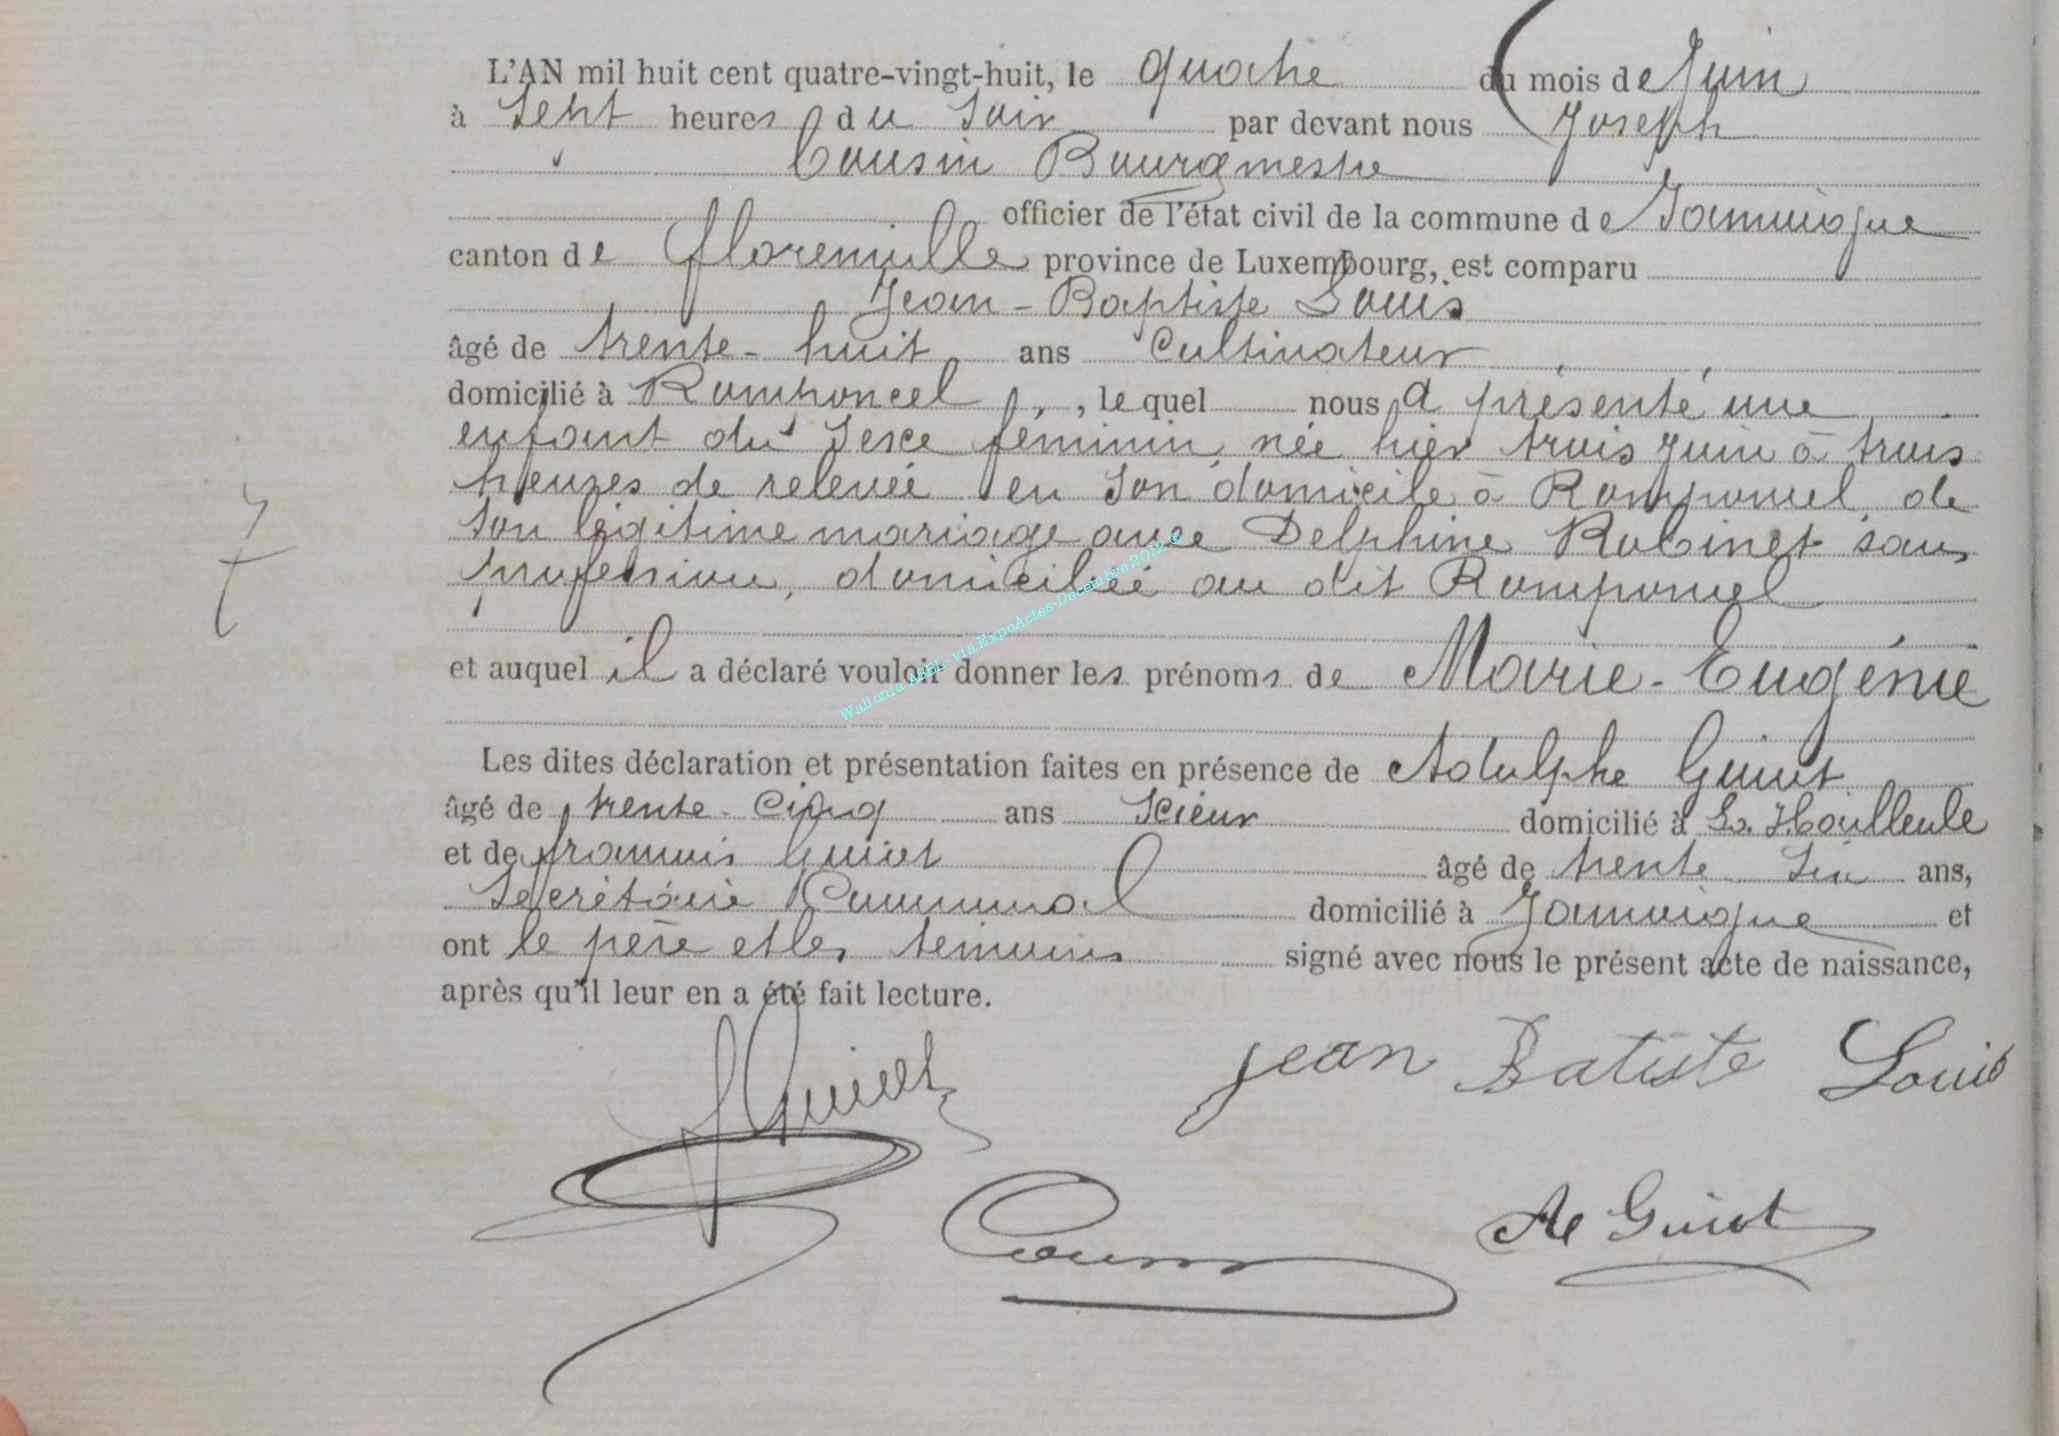 L'AN mil huit cent quatre-vingt-huit, le quatre du mois de Juin
à Sept heures du Soir par devant nous Joseph
Cousin Bourgmestre
officier de l'état civil de la commune de Jamoigne
canton de florenville province de Luxembourg, est comparu
Jean-Baptiste Louis
âgé de trente-huit ans Cultivateur
domicilié à Romponcel, lequel nous a présenté une
enfant du Sexe feminin, née hier trois Juin à trois
heures de relevée en Son domicile à Romponcel, de
Son légitime mariage avec Delphine Robinet sans
profession, domiciliée au dit Romponcel
et auquel il a déclaré vouloir donner les prénoms de Marie-Eugénie
Les dites déclaration et présentation faites en présence de Adolphe Guiot
âgé de trente-cinq ans Scieur domicilié à La Hailleule
et de françois Guiot âgé de trente Six ans,
Secrétaire Communal domicilié à Jamoigne et
ont le père et les témoins signé avec nous le présent acte de naissance,
après qu'il leur en a été fait lecture.
7
Wallonia ASBL via ExpoActes-Décembre 2022 ©
F Guiot
jean Batiste Louis
Cousin
Ae Guiot